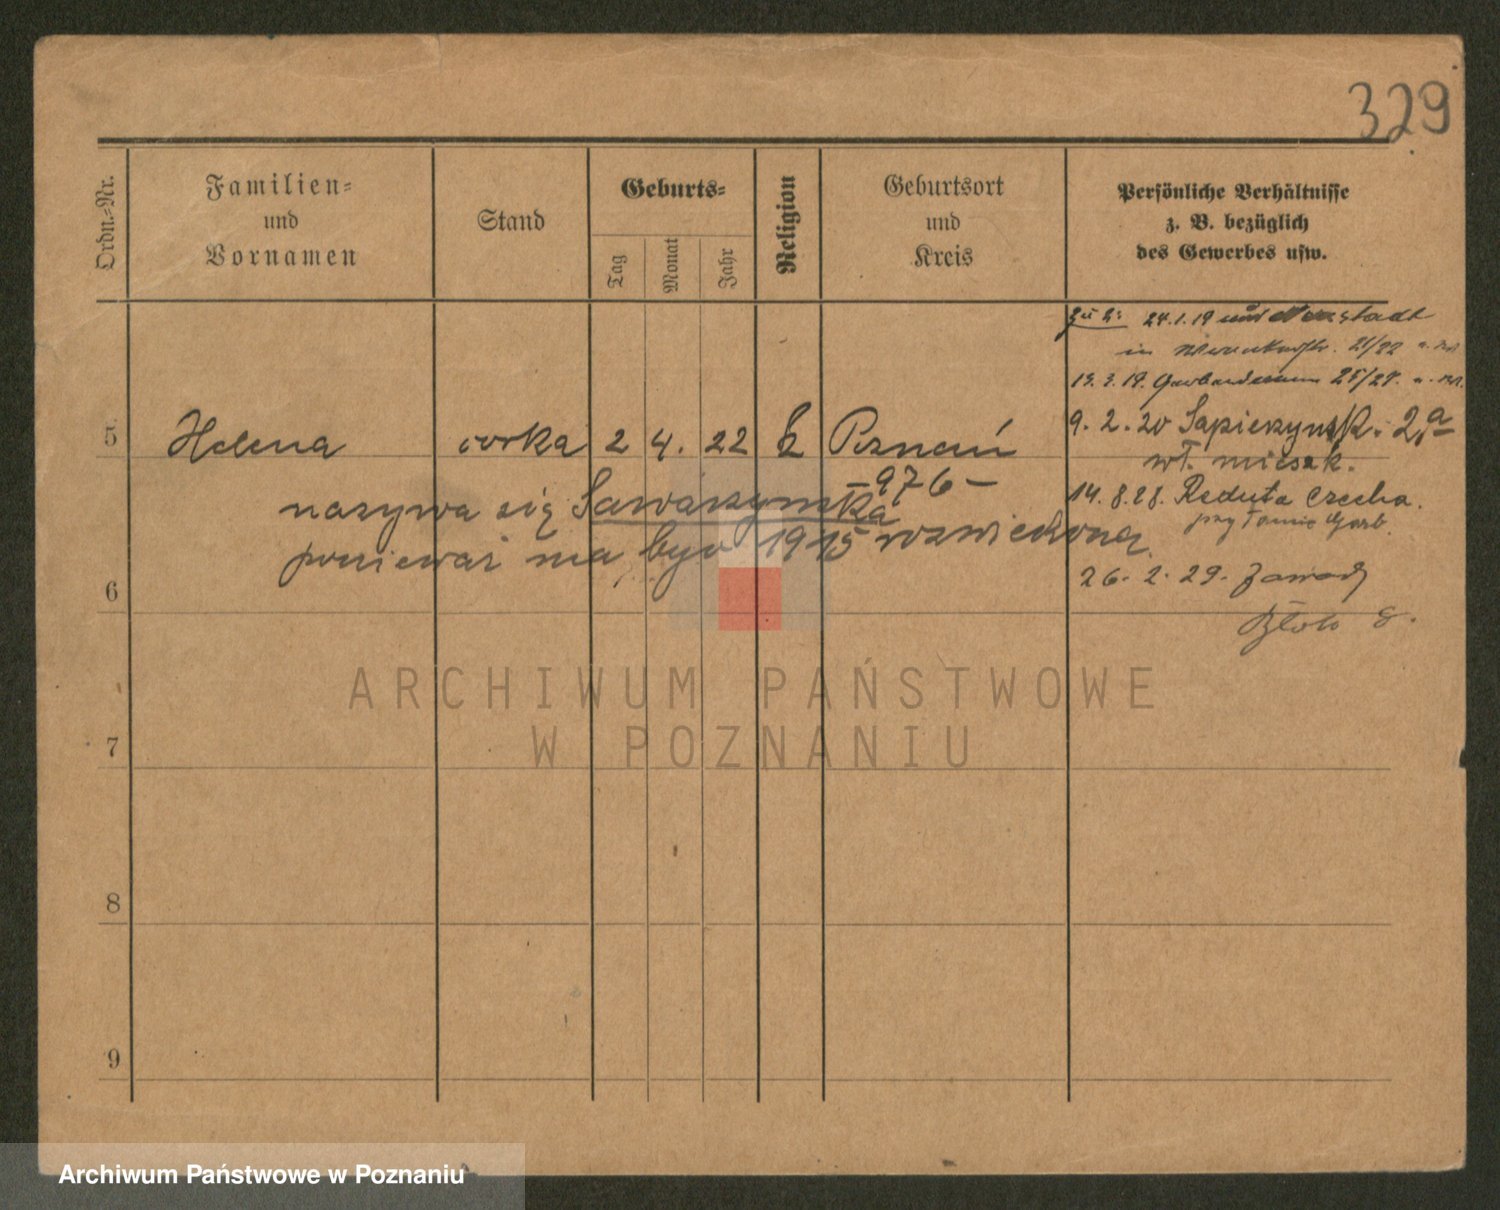 329
Ordn.=Nr.
Familien=
und
Vornamen
Stand
Geburts=
Tag
Monat
Jahr
Religion
Geburtsort
und
Kreis
Persönliche Verhältnisse
z. B. bezüglich
des Gewerbes usw.
zu 2: 24.1.19 Neustadt
in 21/22
13.3.19. 25/27.
5 Helena corka 2 4. 22 Poznań
9.2.20 Sapieżyńsk. 2a
wł. mieszk.
– 976 –
nazywa się Sawarzynska
14.8.28. Reduta Czecha.
przy Garb.
ponieważ ma być 1915 rozwiedzioną.
6
26.2.29. Zawady
8.
ARCHIWUM PAŃSTWOWE
W POZNANIU
7
8
9
Archiwum Państwowe w Poznaniu